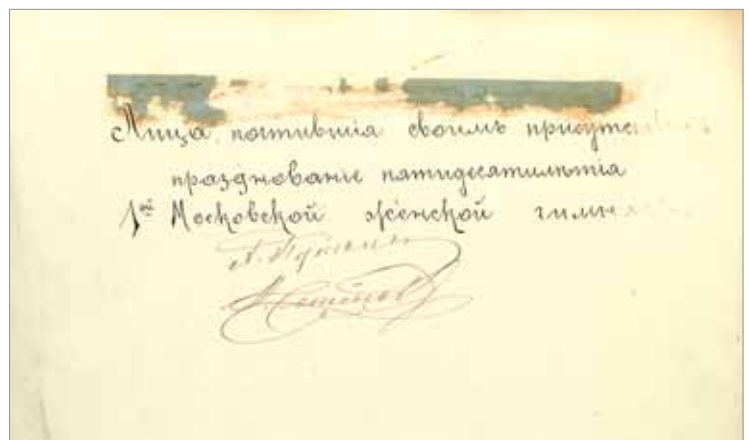 Лица, почтившія своимъ присутствіемъ
празднованіе пятидесятилѣтія
1ой Московской женской гимназіи